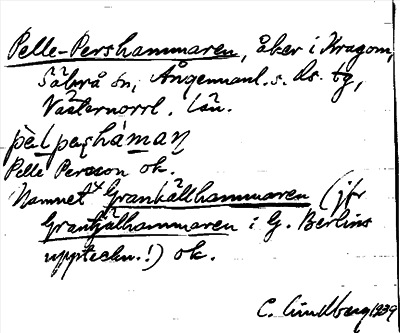 Pelle-Pershammaren, åker i Kragom,
Säbrå sn, Ångermanl. s. ds. tg,
Västernorrl. län.
pèlpæʂháman
Pelle Persson ok.
Namnet Grankällhammaren (jfr
Grantjälhammaren i G. Berlins
uppteckn.!) ok.
C. Lindberg 1939